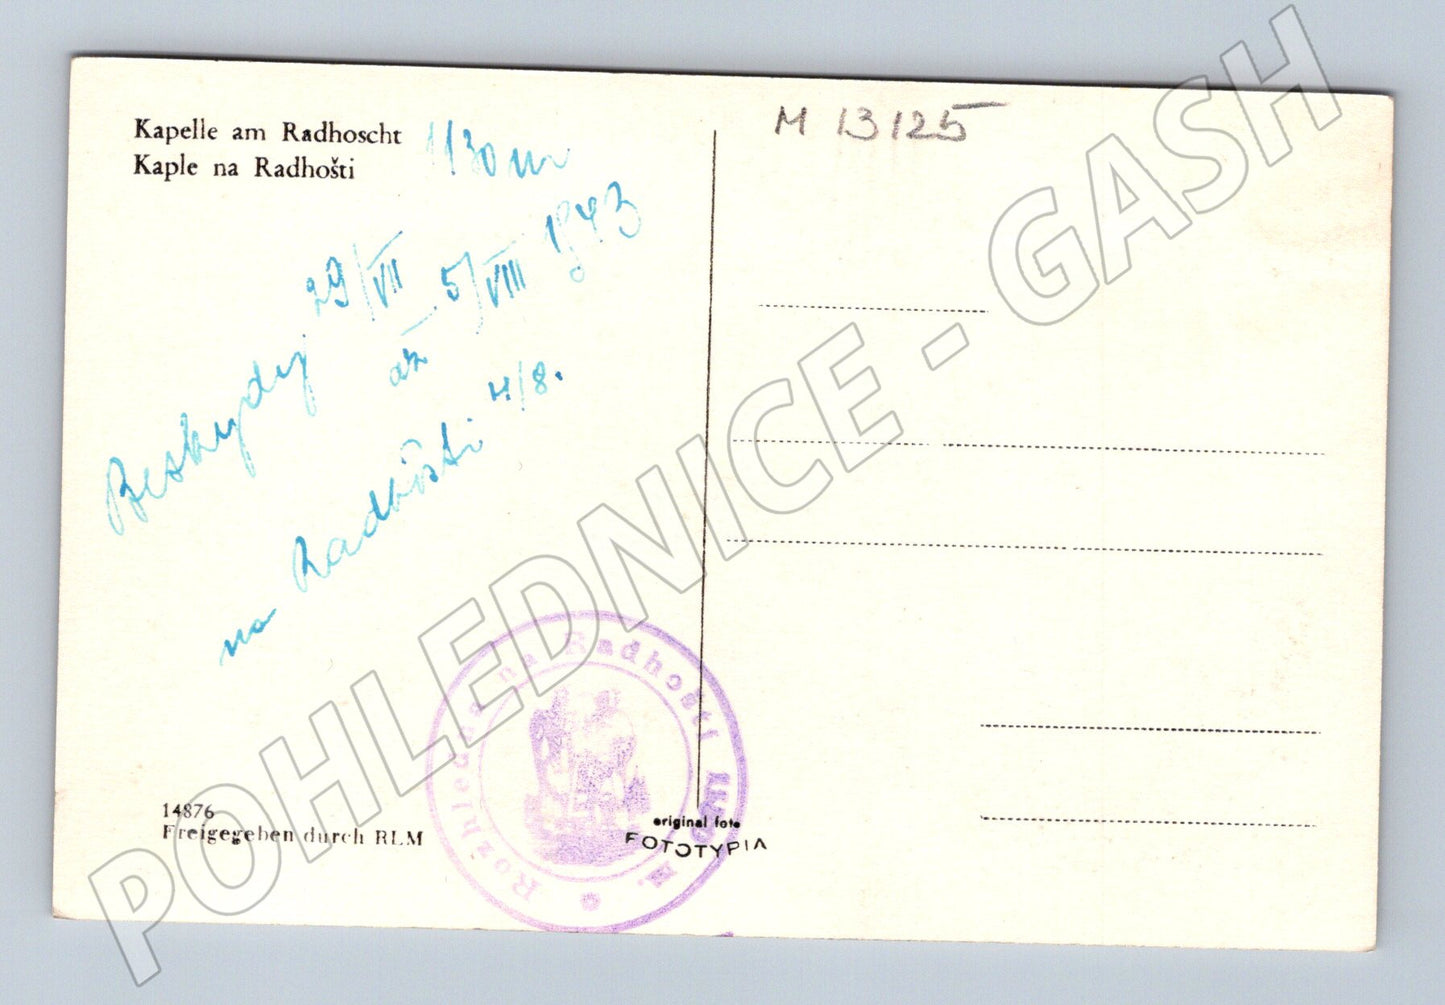 Kapelle am Radhoscht
Kaple na Radhošti
1130 m
M 13125
Beskydy 29/VII
až 5/VIII 1943
na Radhošti 4/8.
Rozhledna na Radhošti 1130 m.
14876
Freigegeben durch RLM
original foto
FOTOTYPIA
POHLEDNICE - GASH